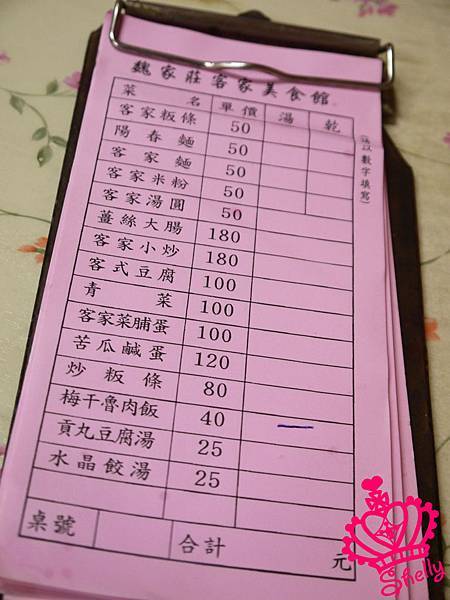 魏家莊客家美食館
菜名 單價 湯 乾
客家粄條 50
陽春麵 50
客家麵 50
客家米粉 50
客家湯圓 50
薑絲大腸 180
客家小炒 180
客式豆腐 100
青菜 100
客家菜脯蛋 100
苦瓜鹹蛋 120
炒粄條 80
梅干魯肉飯 40 一
貢丸豆腐湯 25
水晶餃湯 25
桌號 合計 元
(請以數字填寫)
Shelly